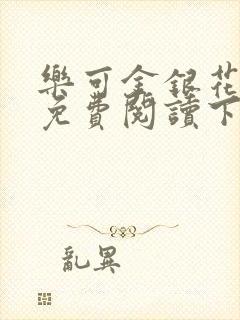 樂可金銀花
免費閱讀下
亂異